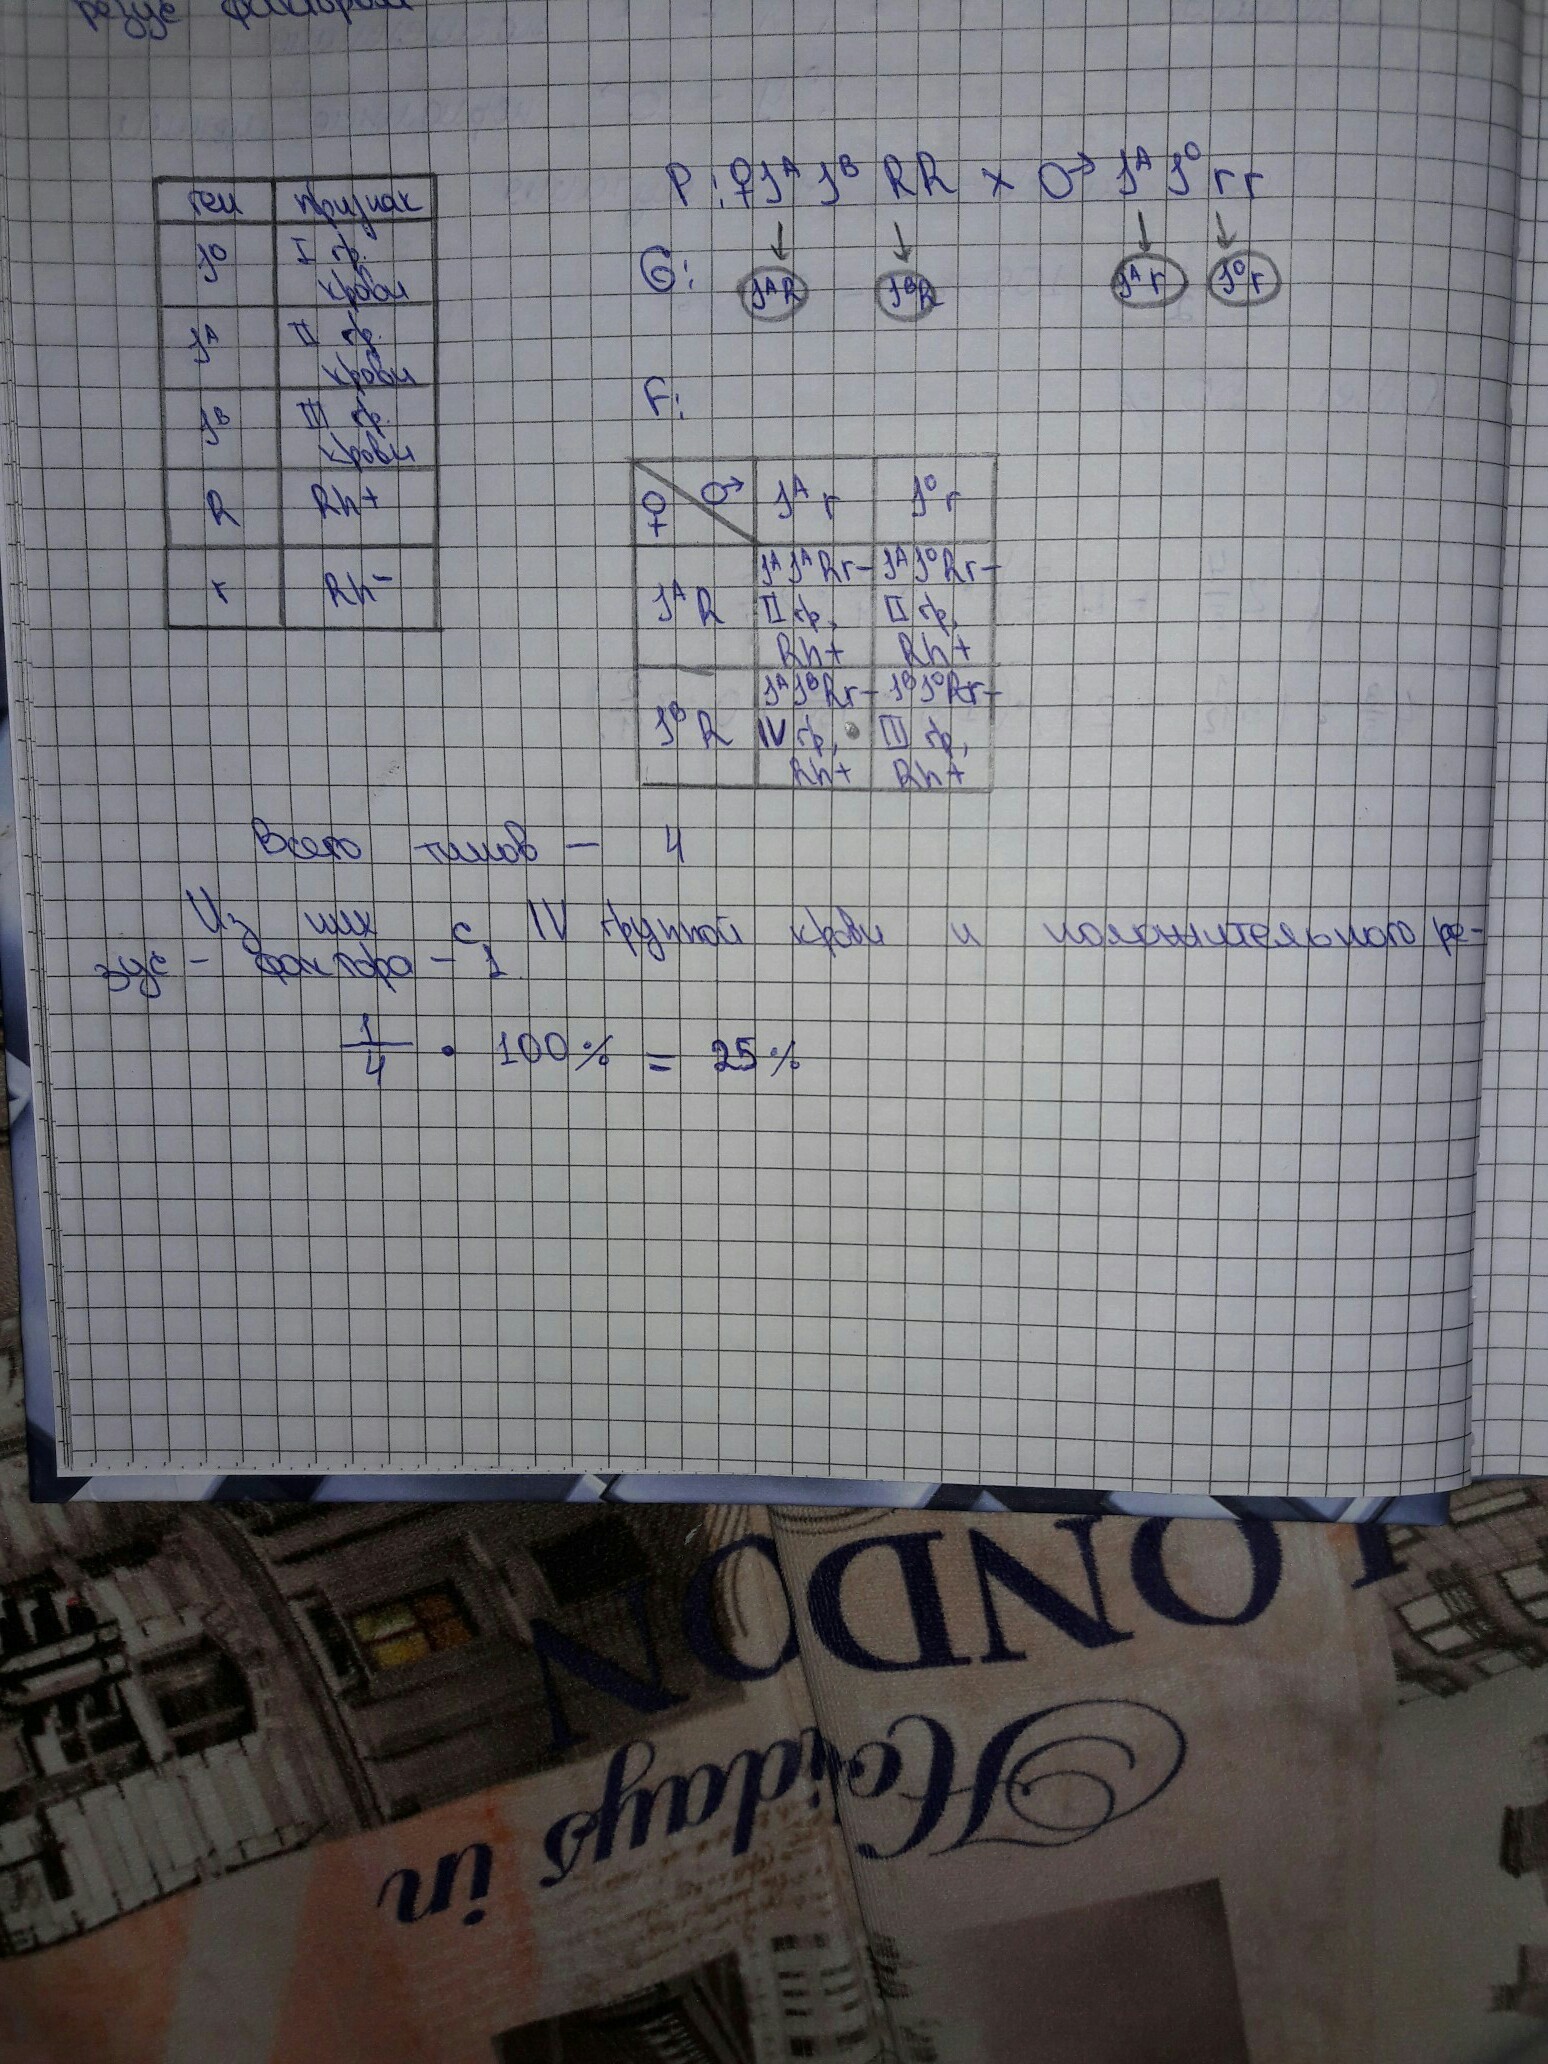 резус фактором
ген признак
J⁰ I гр. крови
Jᴬ II гр. крови
Jᴮ III гр. крови
R Rh+
r Rh-
P: ♀ Jᴬ Jᴮ RR x ♂ Jᴬ J⁰ rr
G: JᴬR JᴮR Jᴬr J⁰r
F:
♀ ♂ Jᴬ r J⁰ r
JᴬJᴬRr- JᴬJ⁰Rr-
Jᴬ R II гр, II гр,
Rh+ Rh+
JᴬJᴮRr- JᴮJ⁰Rr-
Jᴮ R IV гр, III гр,
Rh+ Rh+
Всего типов - 4
Из них с IV группой крови и положительного ре-
зус - фактора - 1
1/4 · 100% = 25%
LONDON
Holidays in